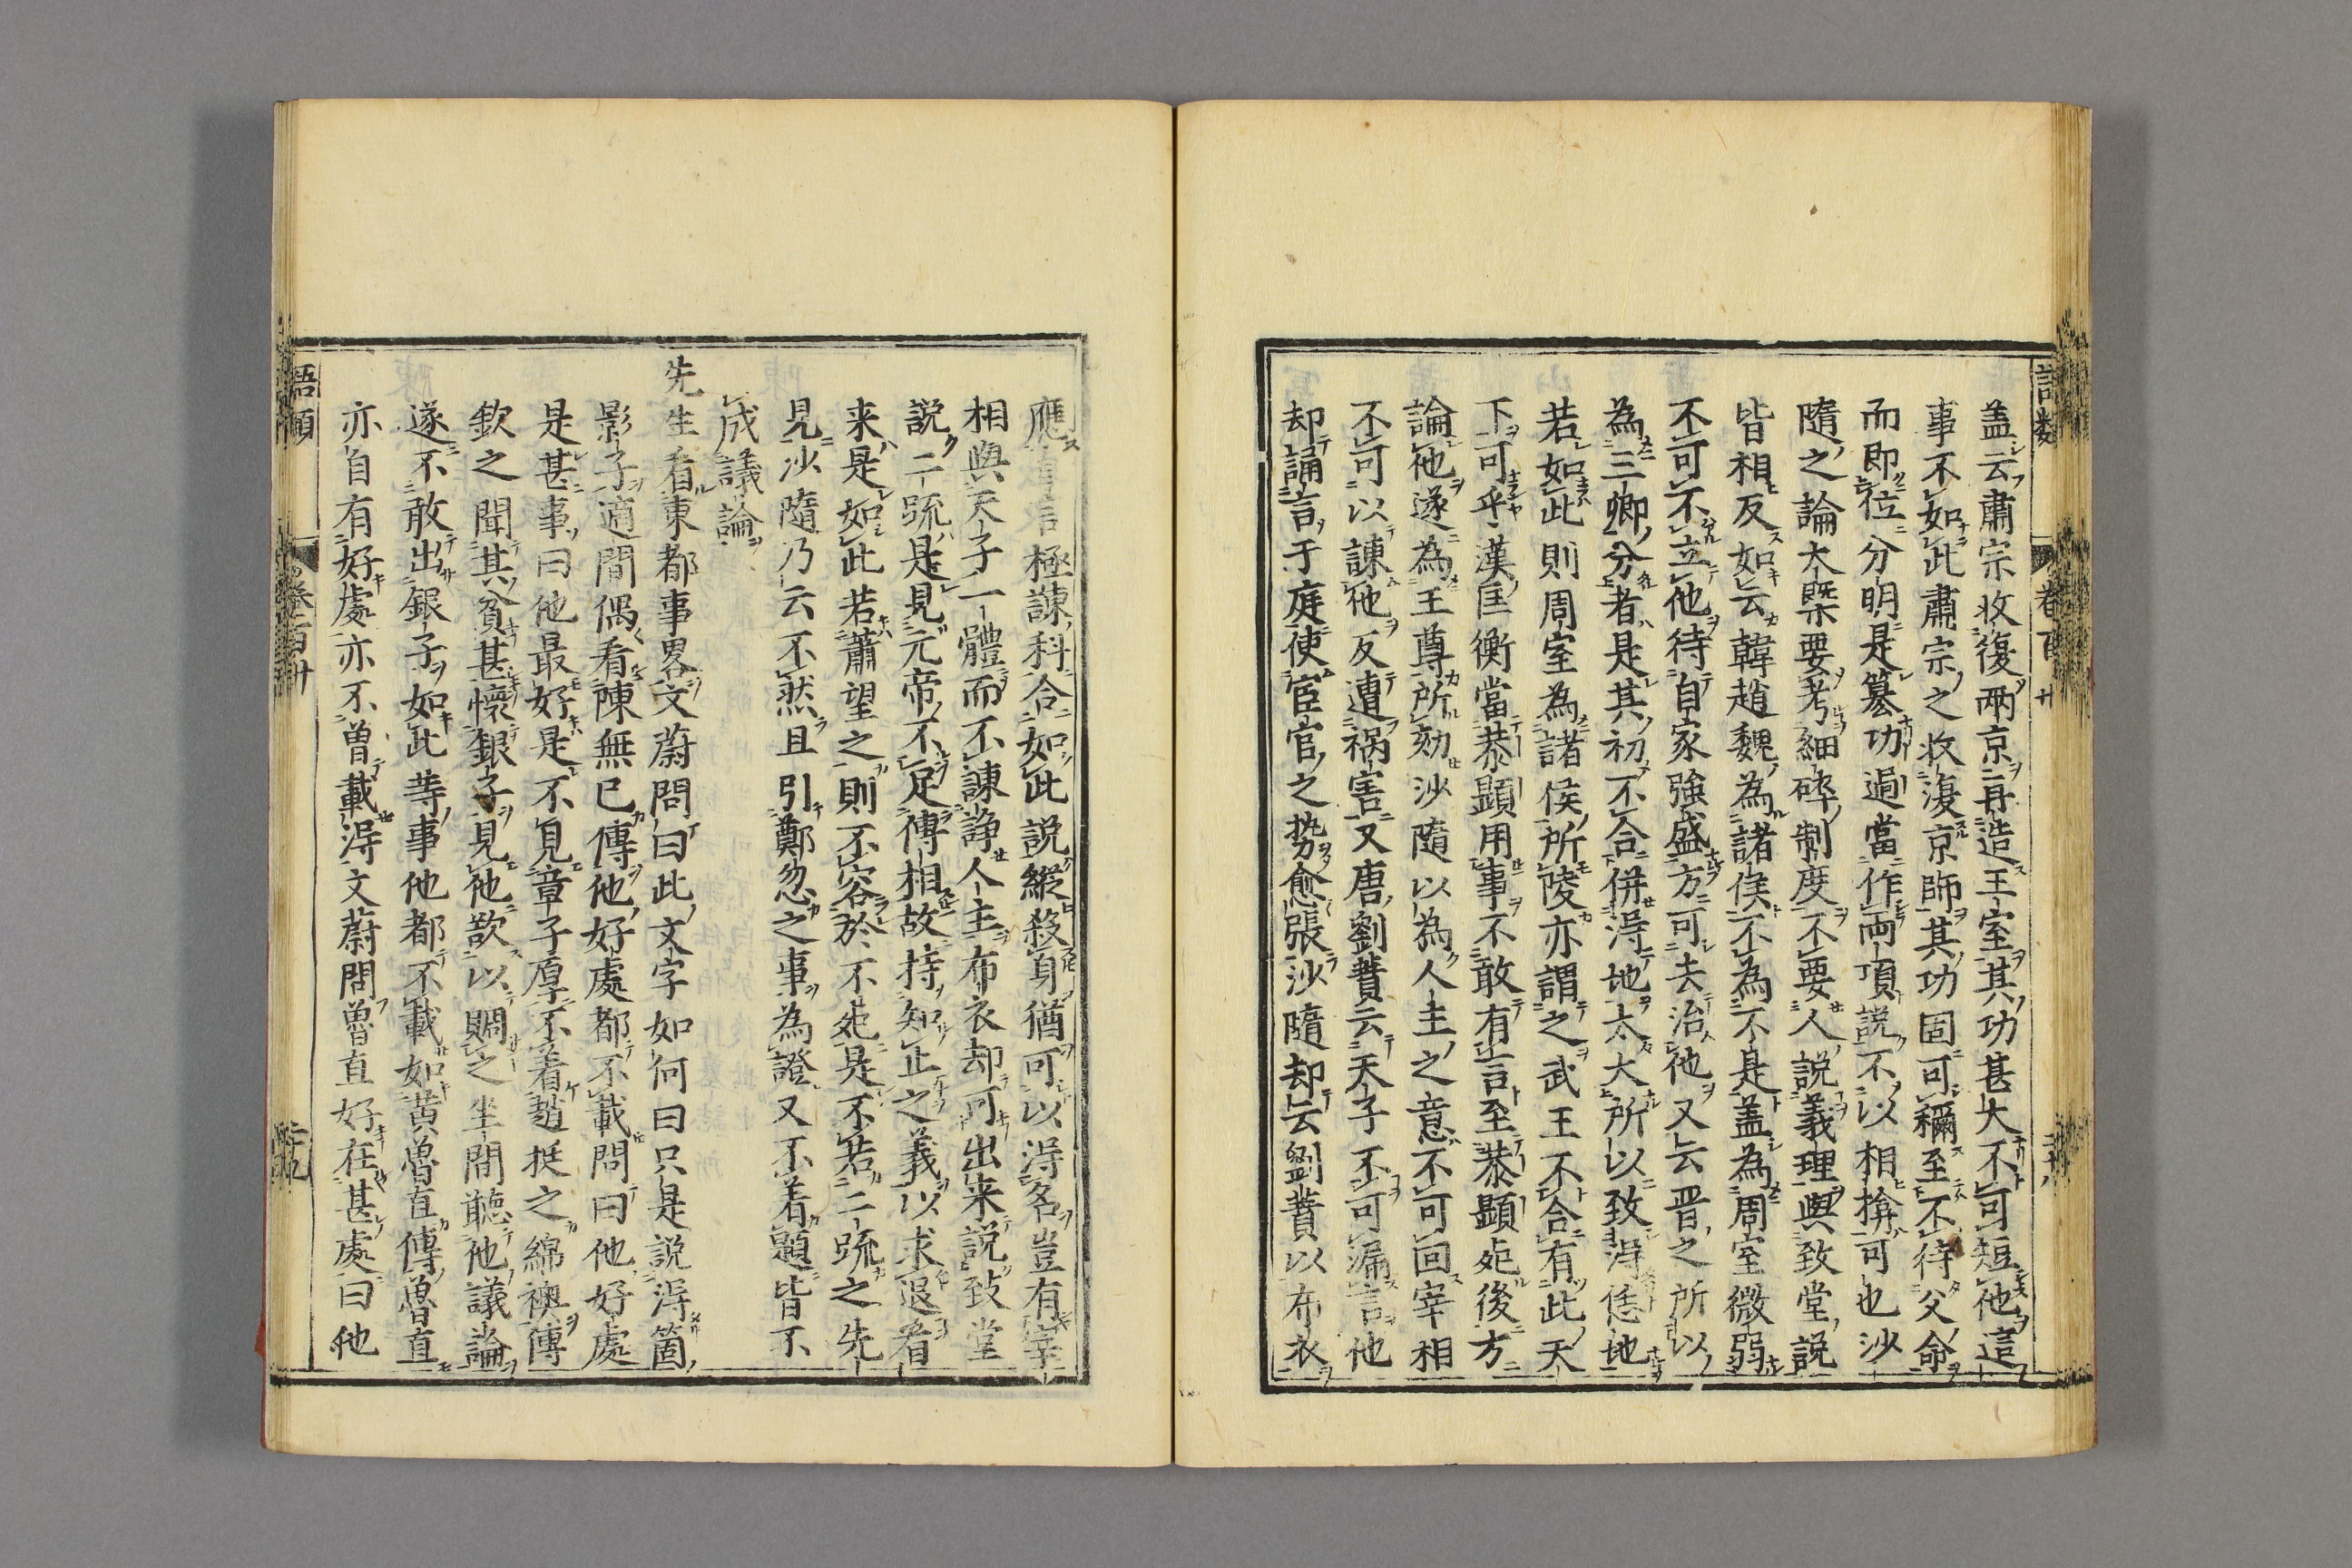 語類 卷百卅 二十八
盖云肅宗收復兩京再造王室其功甚大不可短他這
事不如此肅宗之收復京師其功固可稱至不待父命
而即位分明是簒功過當作兩項說不以相揜可也沙
隨之論大槩要考細碎制度不要人說義理與致堂說
皆相反如云韓趙魏為諸侯不為不是盖為周室微弱
不可不立他待自家強盛方可去治他又云晋之所以
為三卿分者是其初不合併得地太大所以致得恁地
若如此則周室為諸侯所陵亦謂之武王不合有此天
下可乎漢匡衡當恭顯用事不敢有言至恭顯死後方
論他遂為王尊所劾沙隨以為人主之意不可回宰相
不可以諫他反遭禍害又唐劉蕡云天子不可漏言他
却誦言于庭使宦官之勢愈張沙隨却云劉蕡以布衣
應直言極諫科合如此說縱殺身猶可以得名豈有宰
相與天子一體而不諫諍人主布衣却可出来說致堂
說二疏是見元帝不足傅相故持知止之義以求退看
来是如此若蕭望之則不容於不死是不若二疏之先
見沙隨乃云不然且引鄭忽之事為證又不着題皆不
成議論
先生看東都事畧文蔚問曰此文字如何曰只是說得箇
影子適間偶看陳無已傳他好處都不載問曰他好處
是甚事曰他最好是不見章子厚不着趙挺之綿襖傅
欽之聞其貧甚懷銀子見他欲以賙之坐間聽他議論
遂不敢出銀子如此等事他都不載如黄魯直傳魯直
亦自有好處亦不曾載得文蔚問魯直好在甚處曰他
語類 卷一百卅 二十九